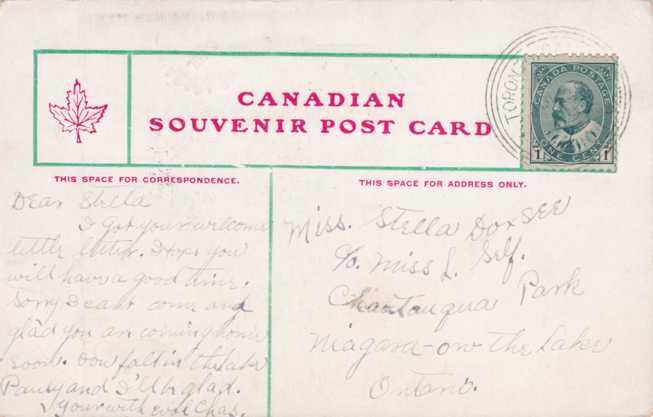 CANADIAN
SOUVENIR POST CARD
TORON
CANADA POSTAGE
1 ONE CENT 1
THIS SPACE FOR CORRESPONDENCE.
Dear Stella
I got your welcome
little letter. I hope you
will have a good time.
Sorry I can't come and
glad you are coming home
soon. Dow fall in the lake
Pansy and I'll b glad.
Your with
Chas.
THIS SPACE FOR ADDRESS ONLY.
Miss. Stella Doxsee
c/o. Miss L. Self.
Chautauqua Park
Niagara-on the Lake
Ontario.